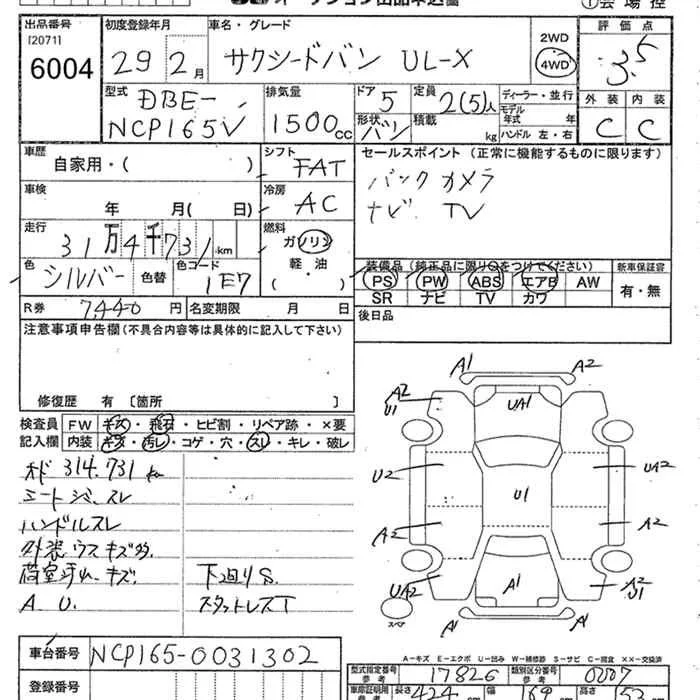 出品番号
[20711
6004
初度登録年月
29 2月
車名・グレード
サクシードバン UL-X
2WD
4WD
評価点
3.5
外装 内装
C C
型式
DBE-
NCP165V
排気量
1500cc
ドア 5
形状 バン
定員 2(5)人
積載 kg
ディーラー・並行
モデル
年式 年
ハンドル 左・右
車歴
自家用・( )
シフト
FAT
車検
年 月( 日)
冷房
AC
走行
31万4千731km
燃料
ガソリン
軽・油
( )
色 シルバー 色替 色コード 1E7
R券 7,440円 名変期限 月 日
セールスポイント (正常に機能するものに限ります)
バックカメラ
ナビ TV
装備品(純正品に限り○をつけてください)
新車保証書
PS PW ABS エアB AW
SR ナビ TV カワ
有・無
後日品
注意事項申告欄(不具合内容等は具体的に記入して下さい)
修復歴 有 〔箇所 〕
検査員 FW キズ・飛石・ヒビ割・リペア跡・×要
記入欄 内装 キズ・汚レ・コゲ・穴・スレ・キレ・破レ
314,731 km
ハンドルスレ
下回りS.
A.U.
A1 A2
A2 U1
UA1
U2
U1
UA2
A2 A2
UA2
A1
A2 U1
A1 A1
スペア
A-キズ E-エクボ U-凹み W-補修跡 S-サビ C-腐食 ××-交換済
車台番号 NCP165-0031302
登録番号
型式指定番号 参考 17826
類別区分番号 参考 0007
長さ 424 幅 169 高さ 153